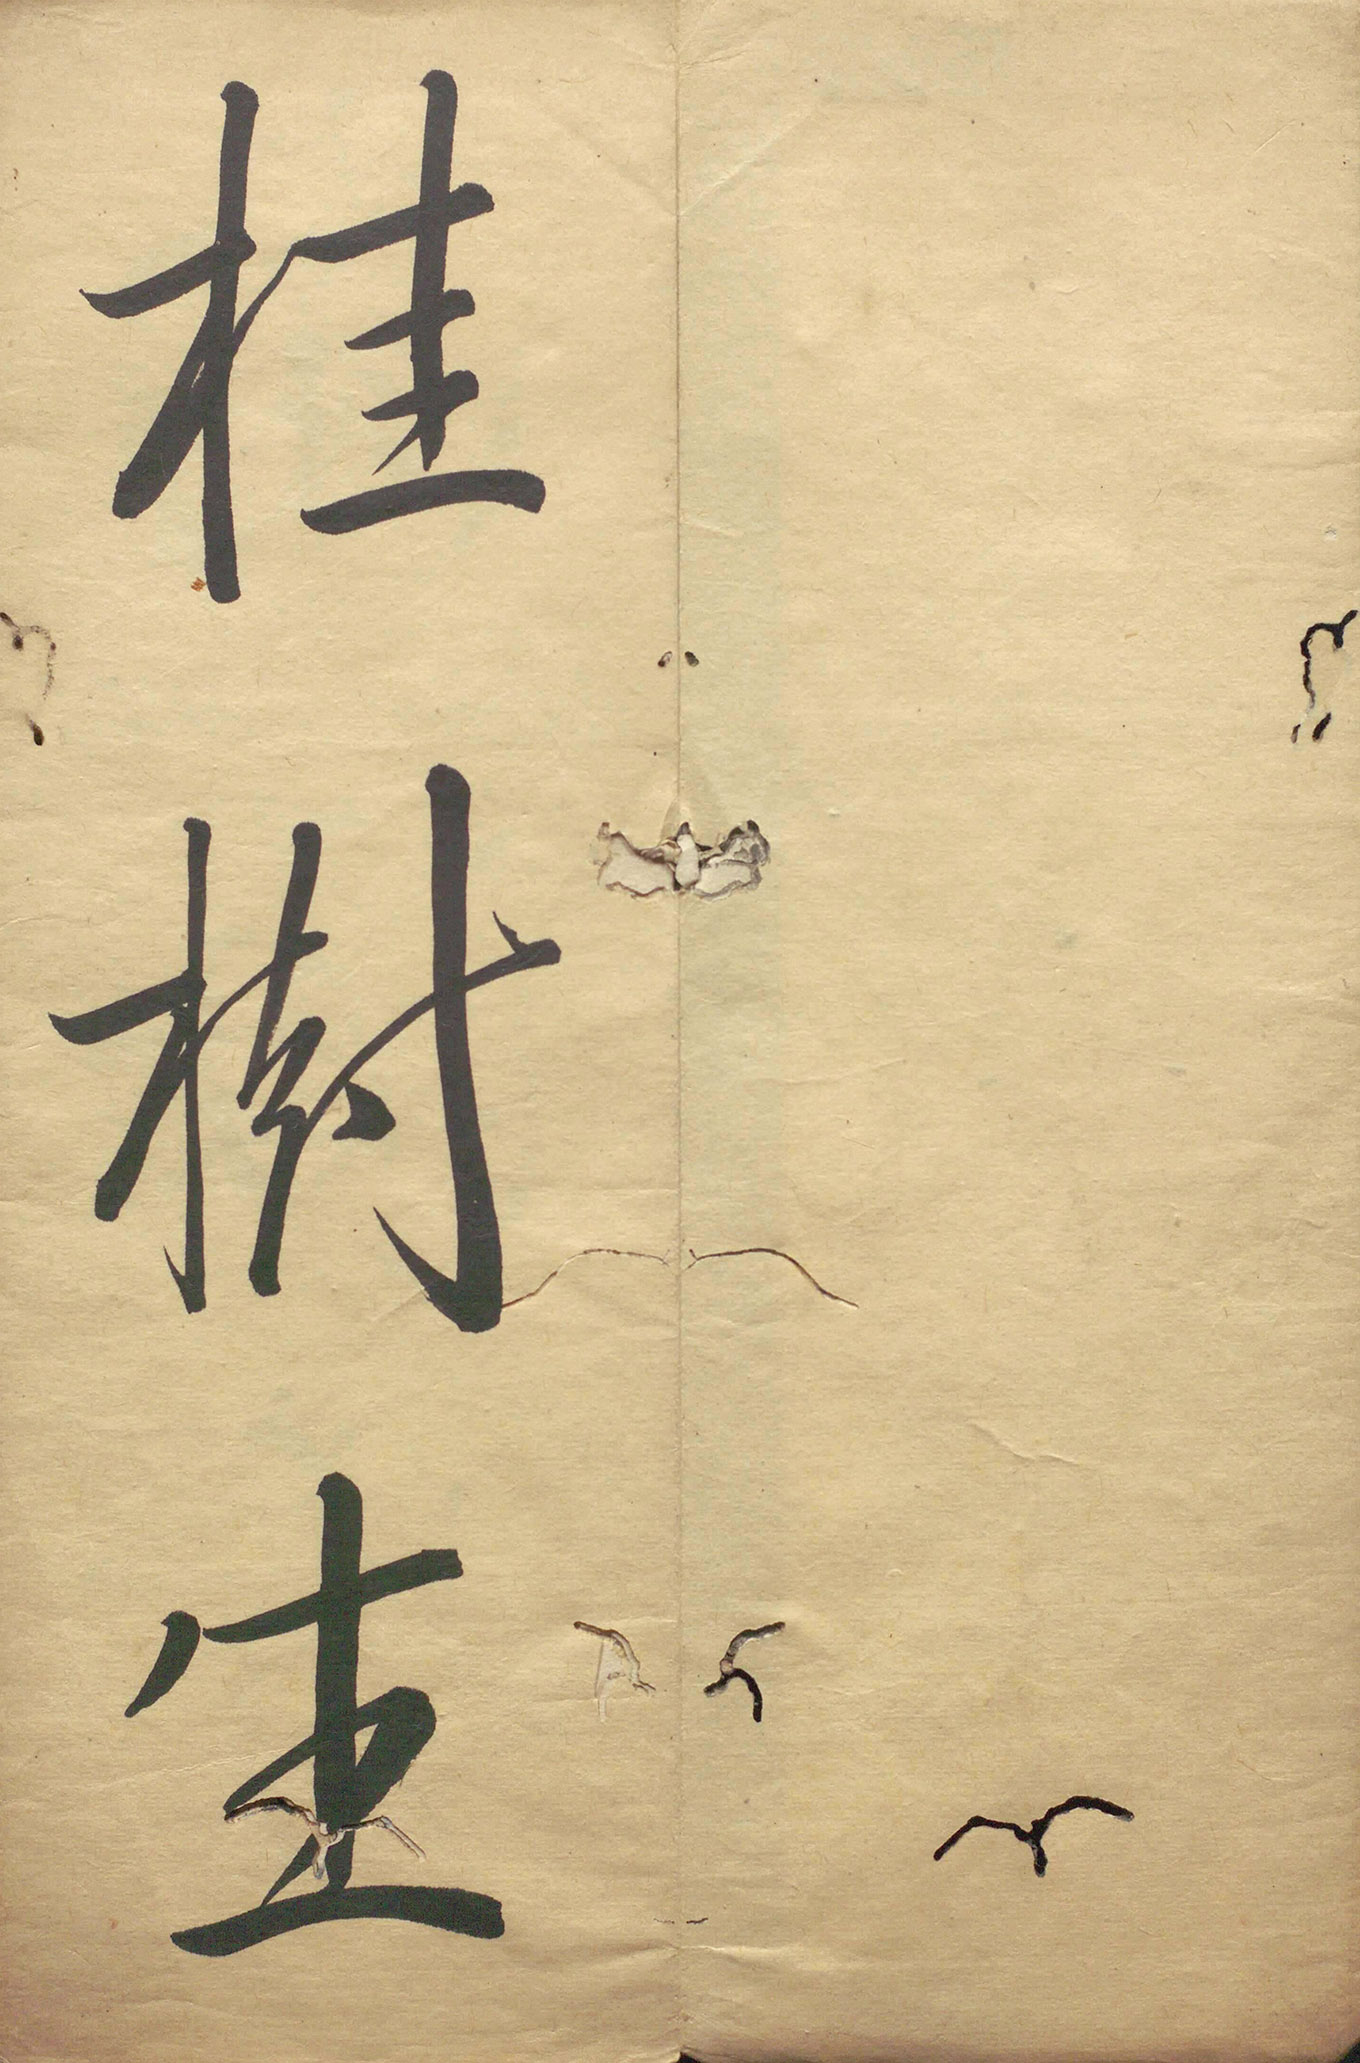 桂樹生